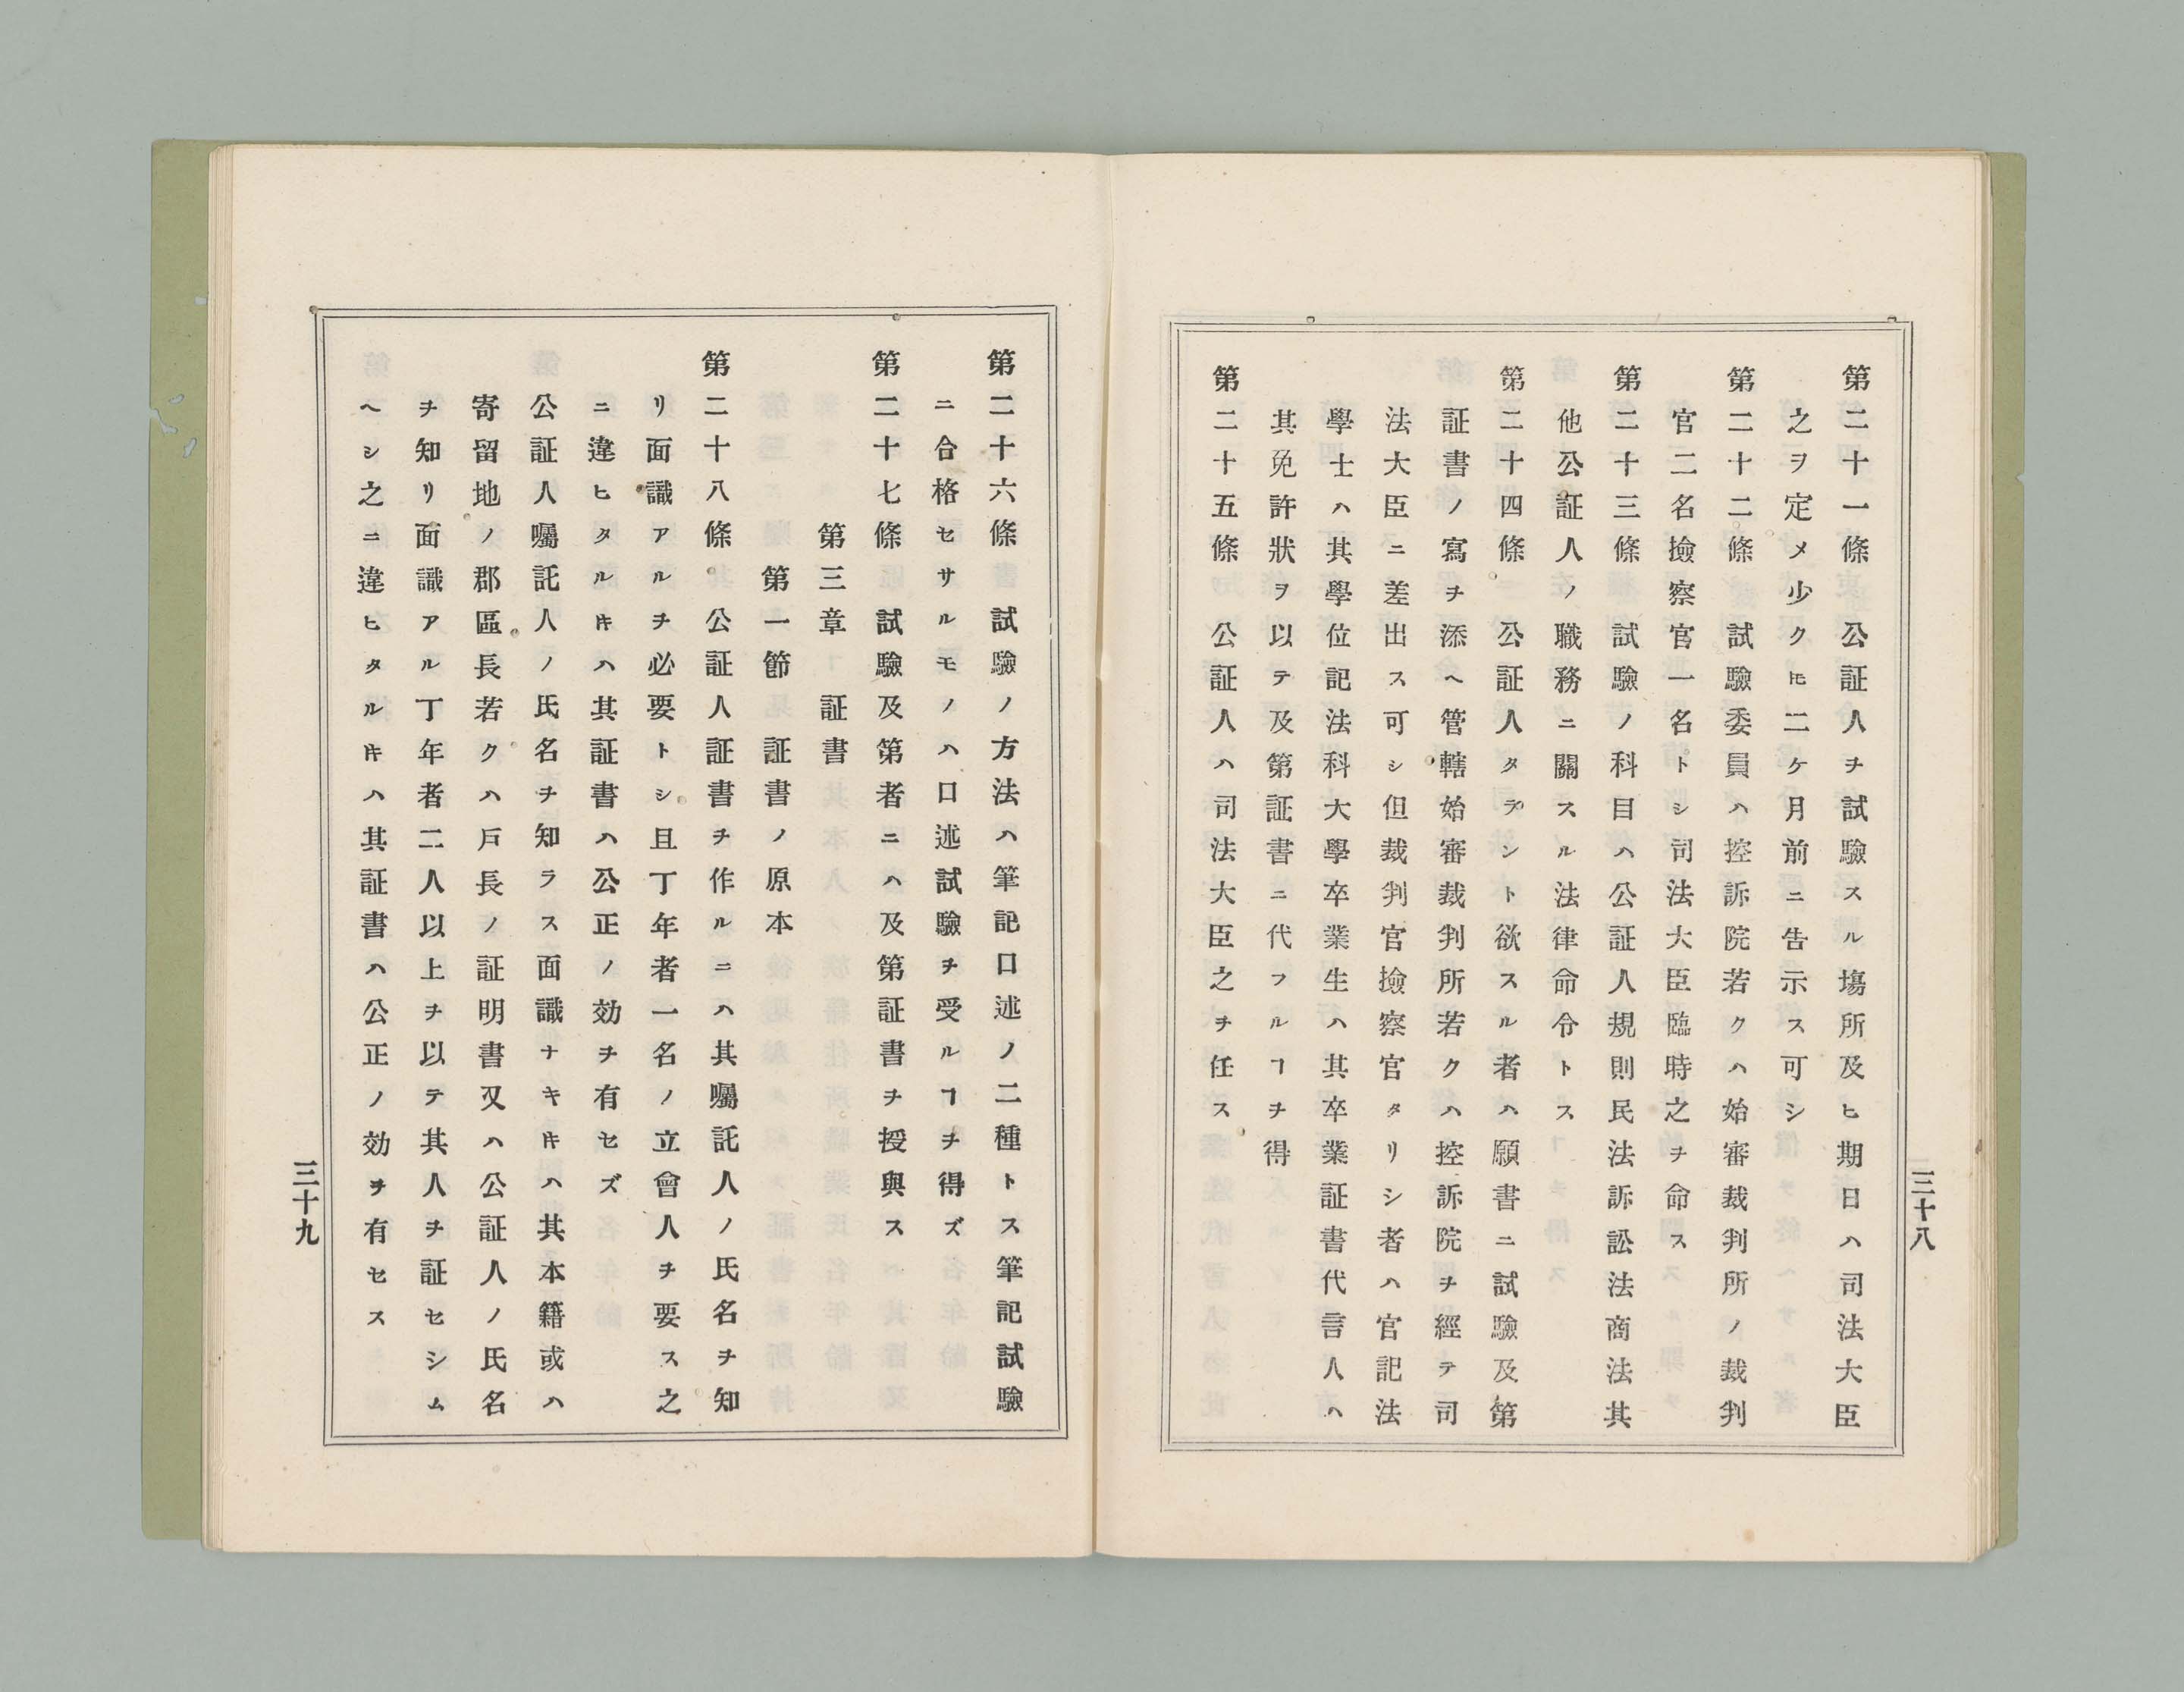 第二十一條　公証人ヲ試驗スル塲所及ヒ期日ハ司法大臣
之ヲ定メ少クㇳモ二ケ月前ニ告示ス可シ
第二十二條　試驗委員ハ控訴院若クハ始審裁判所ノ裁判
官二名撿察官一名トシ司法大臣臨時之ヲ命ス
第二十三條　試驗ノ科目ハ公証人規則民法訴訟法商法其
他公証人ノ職務ニ關スル法律命令トス
第二十四條　公証人タラント欲スル者ハ願書ニ試驗及第
証書ノ寫ヲ添ヘ管轄始審裁判所若クハ控訴院ヲ經テ司
法大臣ニ差出ス可シ但裁判官撿察官タリシ者ハ官記法
學士ハ其學位記法科大學卒業生ハ其卒業証書代言人ハ
其免許狀ヲ以テ及第証書ニ代フルヿヲ得
第二十五條　公証人ハ司法大臣之ヲ任ス
三十八
第二十六條　試驗ノ方法ハ筆記口述ノ二種トス筆記試驗
ニ合格セサルモノハ口述試驗ヲ受ルヿヲ得ズ
第二十七條　試驗及第者ニハ及第証書ヲ授與ス
第三章　証書
第一節　証書ノ原本
第二十八條　公証人証書ヲ作ルニハ其囑託人ノ氏名ヲ知
リ面識アルヲ必要トシ且丁年者一名ノ立會人ヲ要ス之
ニ違ヒタルㇳキハ其証書ハ公正ノ効ヲ有セズ
公証人囑託人ノ氏名ヲ知ラス面識ナキㇳキハ其本籍或ハ
寄留地ノ郡區長若クハ戸長ノ証明書又ハ公証人ノ氏名
ヲ知リ面識アル丁年者二人以上ヲ以テ其人ヲ証セシム
ヘシ之ニ違ヒタルㇳキハ其証書ハ公正ノ効ヲ有セス
三十九